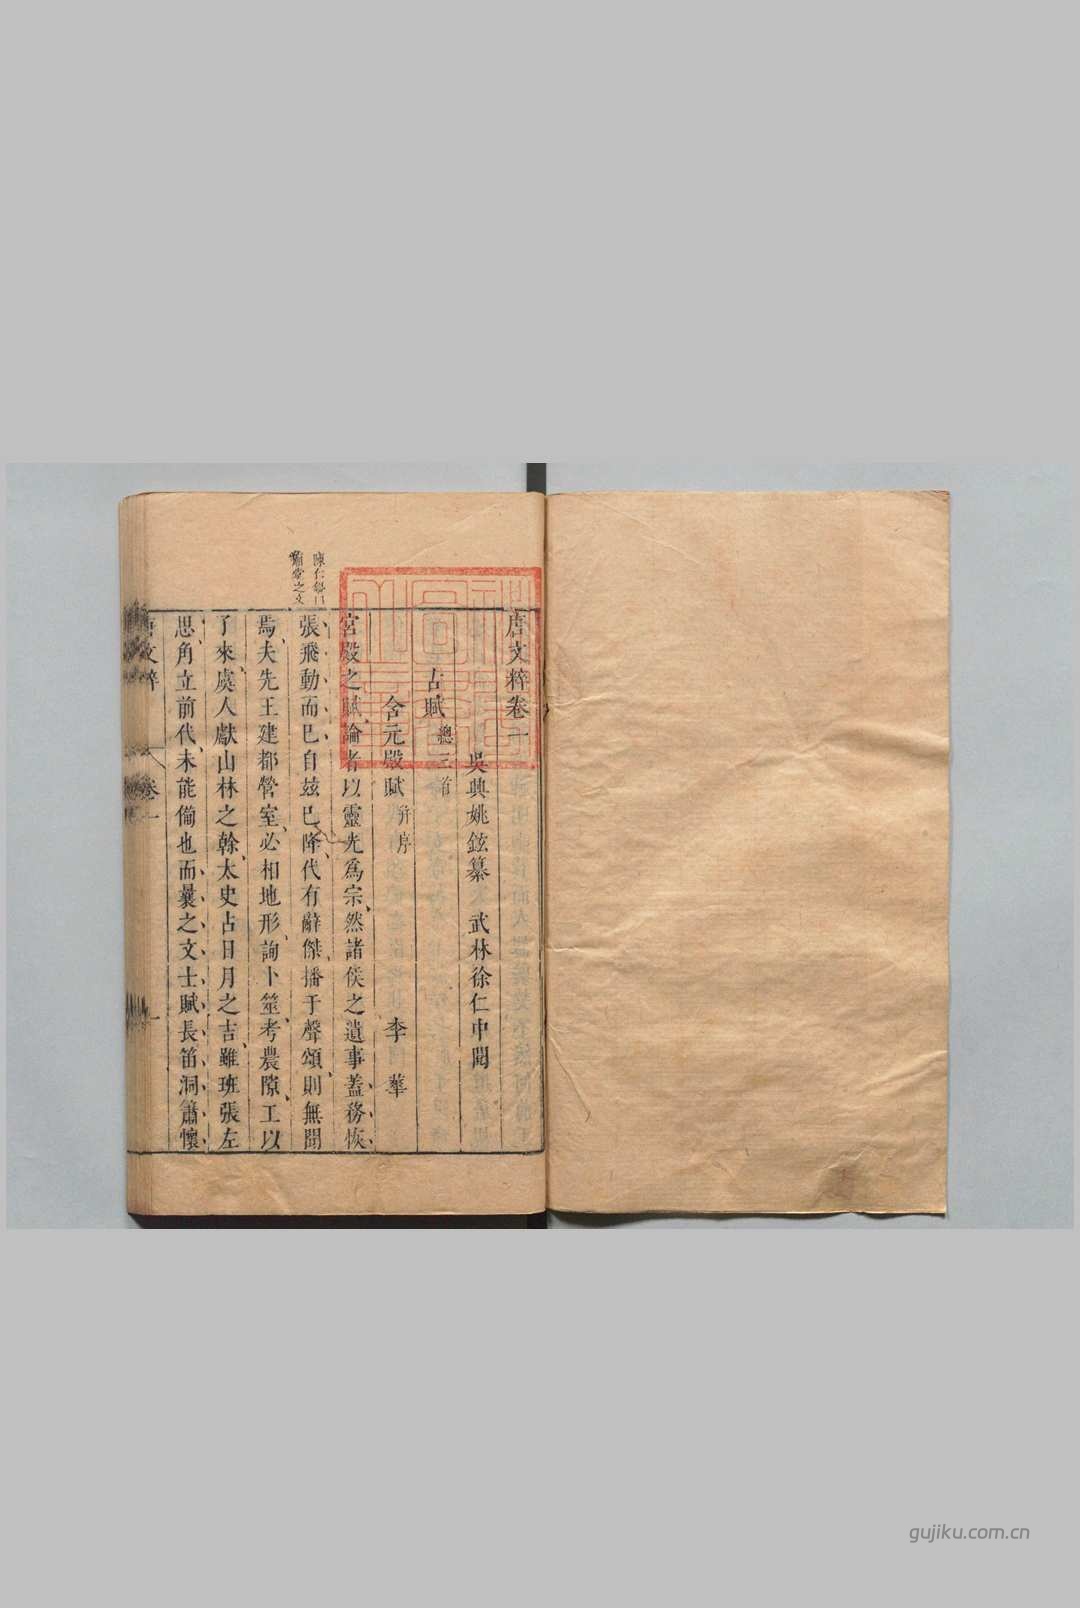 唐文粹卷一
吳興姚鉉纂 武林徐仁中閱
古賦 總三首
含元殿賦 并序 李華
宮殿之賦論者以靈光為宗然諸侯之遺事蓋務恢
張飛動而巳自茲巳降代有辭傑播于聲頌則無聞
焉夫先王建都營室必相地形詢卜筮考農隙工以
子來虞人獻山林之榦太史占日月之吉雖班張左
思角立前代未能備也而曩之文士賦長笛洞簫懷
唐文粹 卷一 一
陳仁錫曰
廟堂之文
gujiku.com.cn